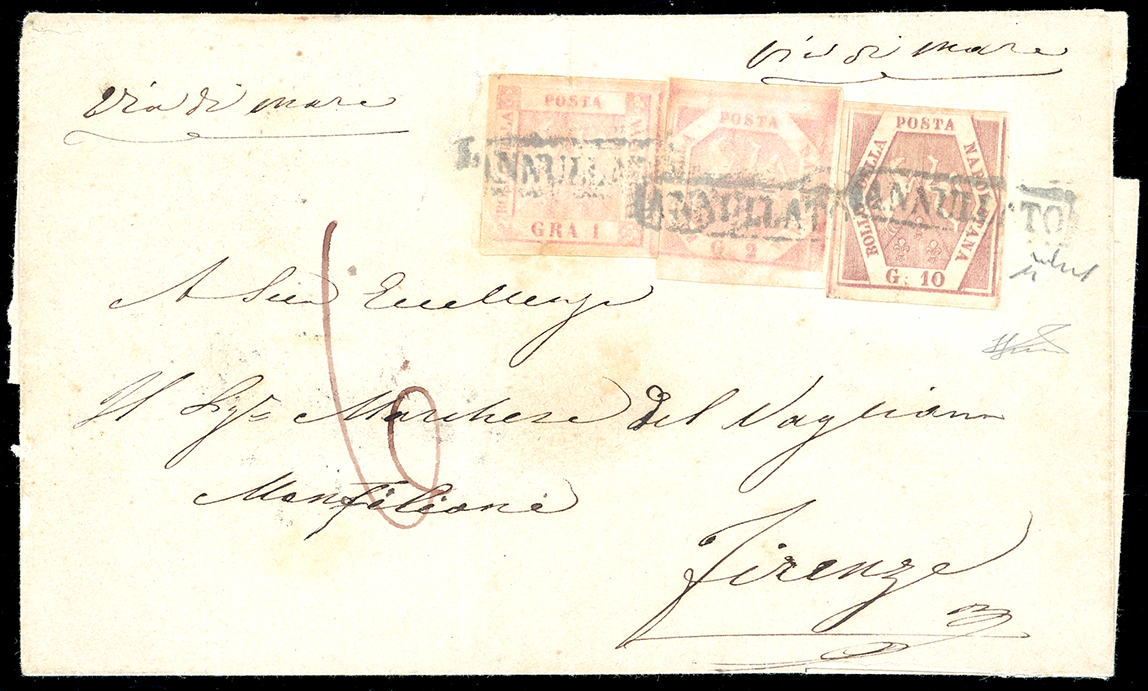 Via di mare
Via di mare
POSTA
BOLLO DELLA
GRA 1
POSTA
G. 2
POSTA
BOLLO DELLA
NAPOLETANA
G. 10
ANNULLATO
ANNULLATO
ANNULLATO
A Sua Eccellenza
6
Il Sigr Marchese del
Firenze